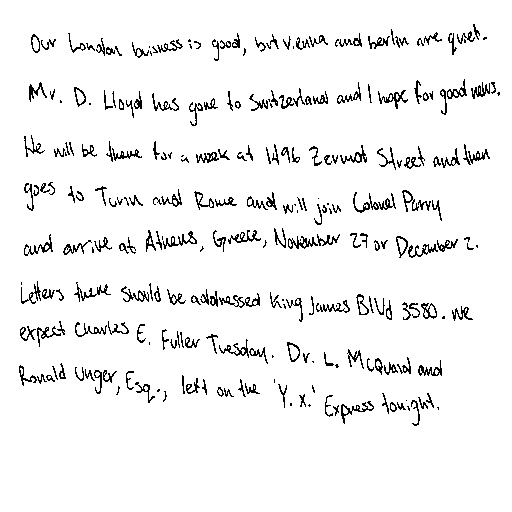 Our London buisness is good, but vienna and berlin are quiet.
Mr. D. Lloyd has gone to Switzerland and I hope for good news.
He will be there for a week at 1496 Zermot Street and then
goes to Turin and Rome and will join Colonel Parry
and arrive at Athens, Greece, November 27 or December 2.
Letters there should be addressed King James Blvd 3580. We
expect Charles E. Fuller Tuesday. Dr. L. McQuaid and
Ronald Unger, Esq., left on the 'Y.X.' Express tonight.